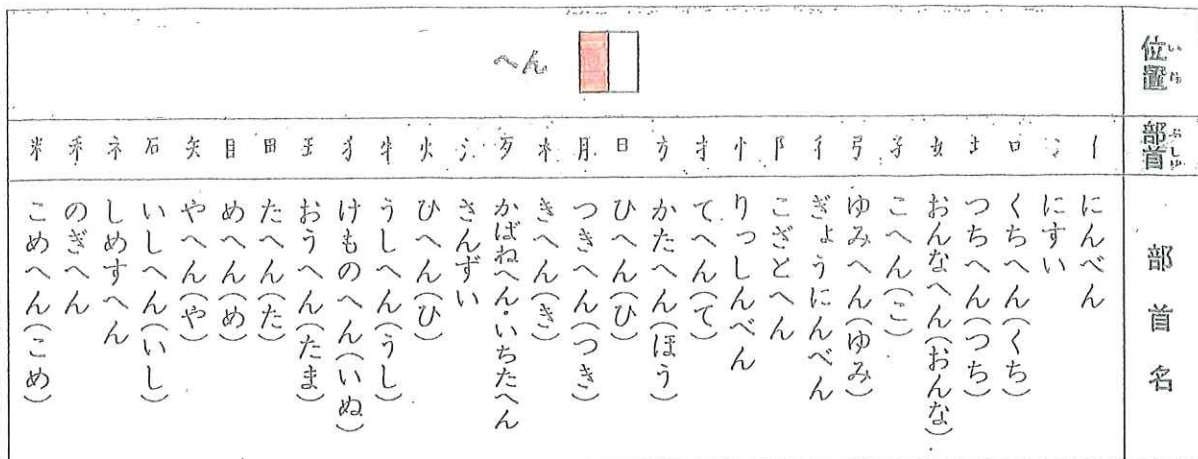 位置
いち
部首
ぶしゅ
部首名
へん
亻 にんべん
冫 にすい
口 くちへん(くち)
土 つちへん(つち)
女 おんなへん(おんな)
子 こへん(こ)
弓 ゆみへん(ゆみ)
彳 ぎょうにんべん
阝 こざとへん
忄 りっしんべん
扌 てへん(て)
方 かたへん(ほう)
日 ひへん(ひ)
月 つきへん(つき)
木 きへん(き)
歹 かばねへん・いちたへん
氵 さんずい
火 ひへん(ひ)
牛 うしへん(うし)
犭 けものへん(いぬ)
王 おうへん(たま)
田 たへん(た)
目 めへん(め)
矢 やへん(や)
石 いしへん(いし)
ネ しめすへん
禾 のぎへん
米 こめへん(こめ)